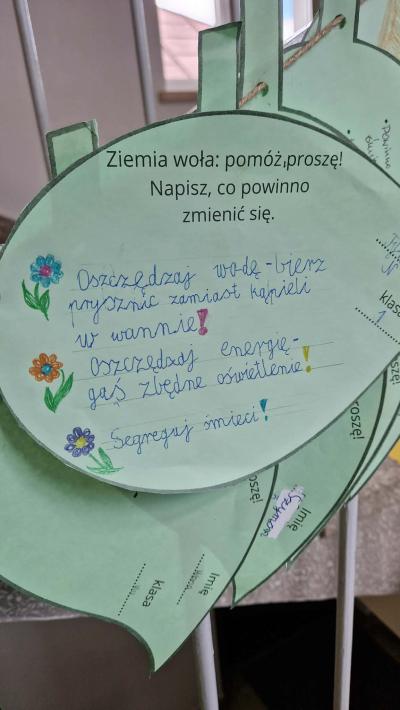 Ziemia woła: pomóż, proszę!
Napisz, co powinno
zmienić się.
Oszczędzaj wodę - bierz
prysznic zamiast kąpieli
w wannie!
Oszczędzaj energię -
gaś zbędne oświetlenie!
Segreguj śmieci!
klasa
1
roszę!
oszę!
Imię
Imię
klasa